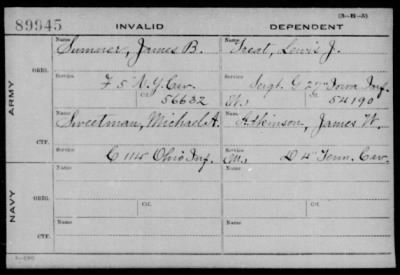 (3-B-5)
89945 INVALID DEPENDENT
ARMY
NAVY
Name Name
ORIG. Sumner, James B. Treat, Lewis J.
Service Service
F 5" N.Y. Cav. Sergt. G 27" Iowa Inf.
Ctf. 56632 W. 54190
Name Name
CTF. Sweetman, Michael A. Atkinson, James W.
Service Service
C 114 Ohio Inf. M. D 4" Tenn. Cav.
Name Name
ORIG.
Service Ctf. Service Ctf.
Name Name
CTF.
Service Service